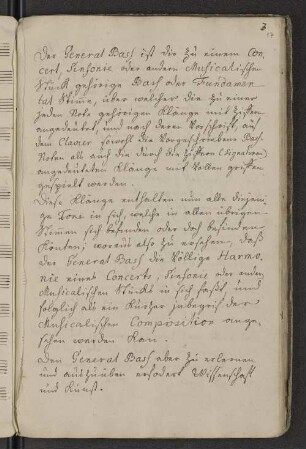 3
Der General Bass ist die zu einem Con-
cert, Sinfonie oder andern Musicalischen
Stück gehörige Bass oder Fundamen-
tal Stime, über welcher die zu einer
jeden Note gehörigen Klänge mit Ziffern
angedeutet, und nach deren Vorschrift, auf
dem Clavier sowohl die Vorgeschriebene Bass-
Noten als auch die durch die Ziffern (Signaturen)
angedeuteten Klänge mit Vollen Griffen
gespielt werden.
Diese Klänge enthalten nun alle diejeni-
ge Tone in sich, welche in allen übrigen
Stimen sich befinden oder doch befinden
könten; woraus also zu ersehen, daß
der General Bass die Völlige Harmo-
nie eines Concerts, Sinfonie oder andern
Musicalischen Stücks in sich faßt und
folglich als ein kurzer Inbegrif der
Musicalischen Composition ange-
sehen werden kan.
Den General Bass aber zu erlernen
und auszuüben erfodert Wissenschaft
und Kunst.